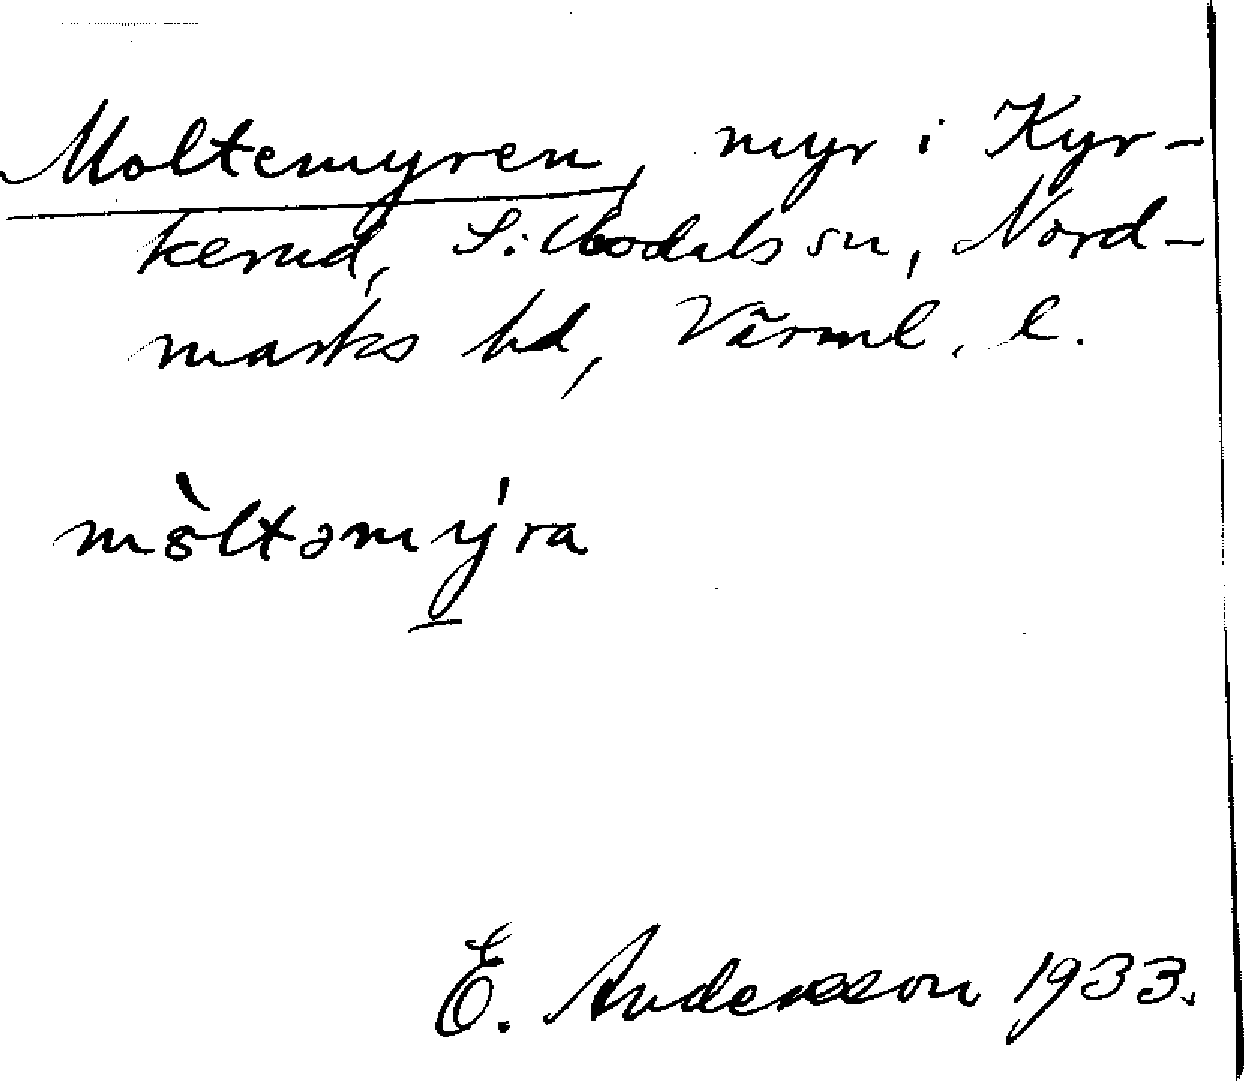 Moltemyren, myr i Kyr-
kerud, Sillbodals sn, Nord-
marks hd, Värml. l.
mòltəmý̠ra
E. Andersson 1933.